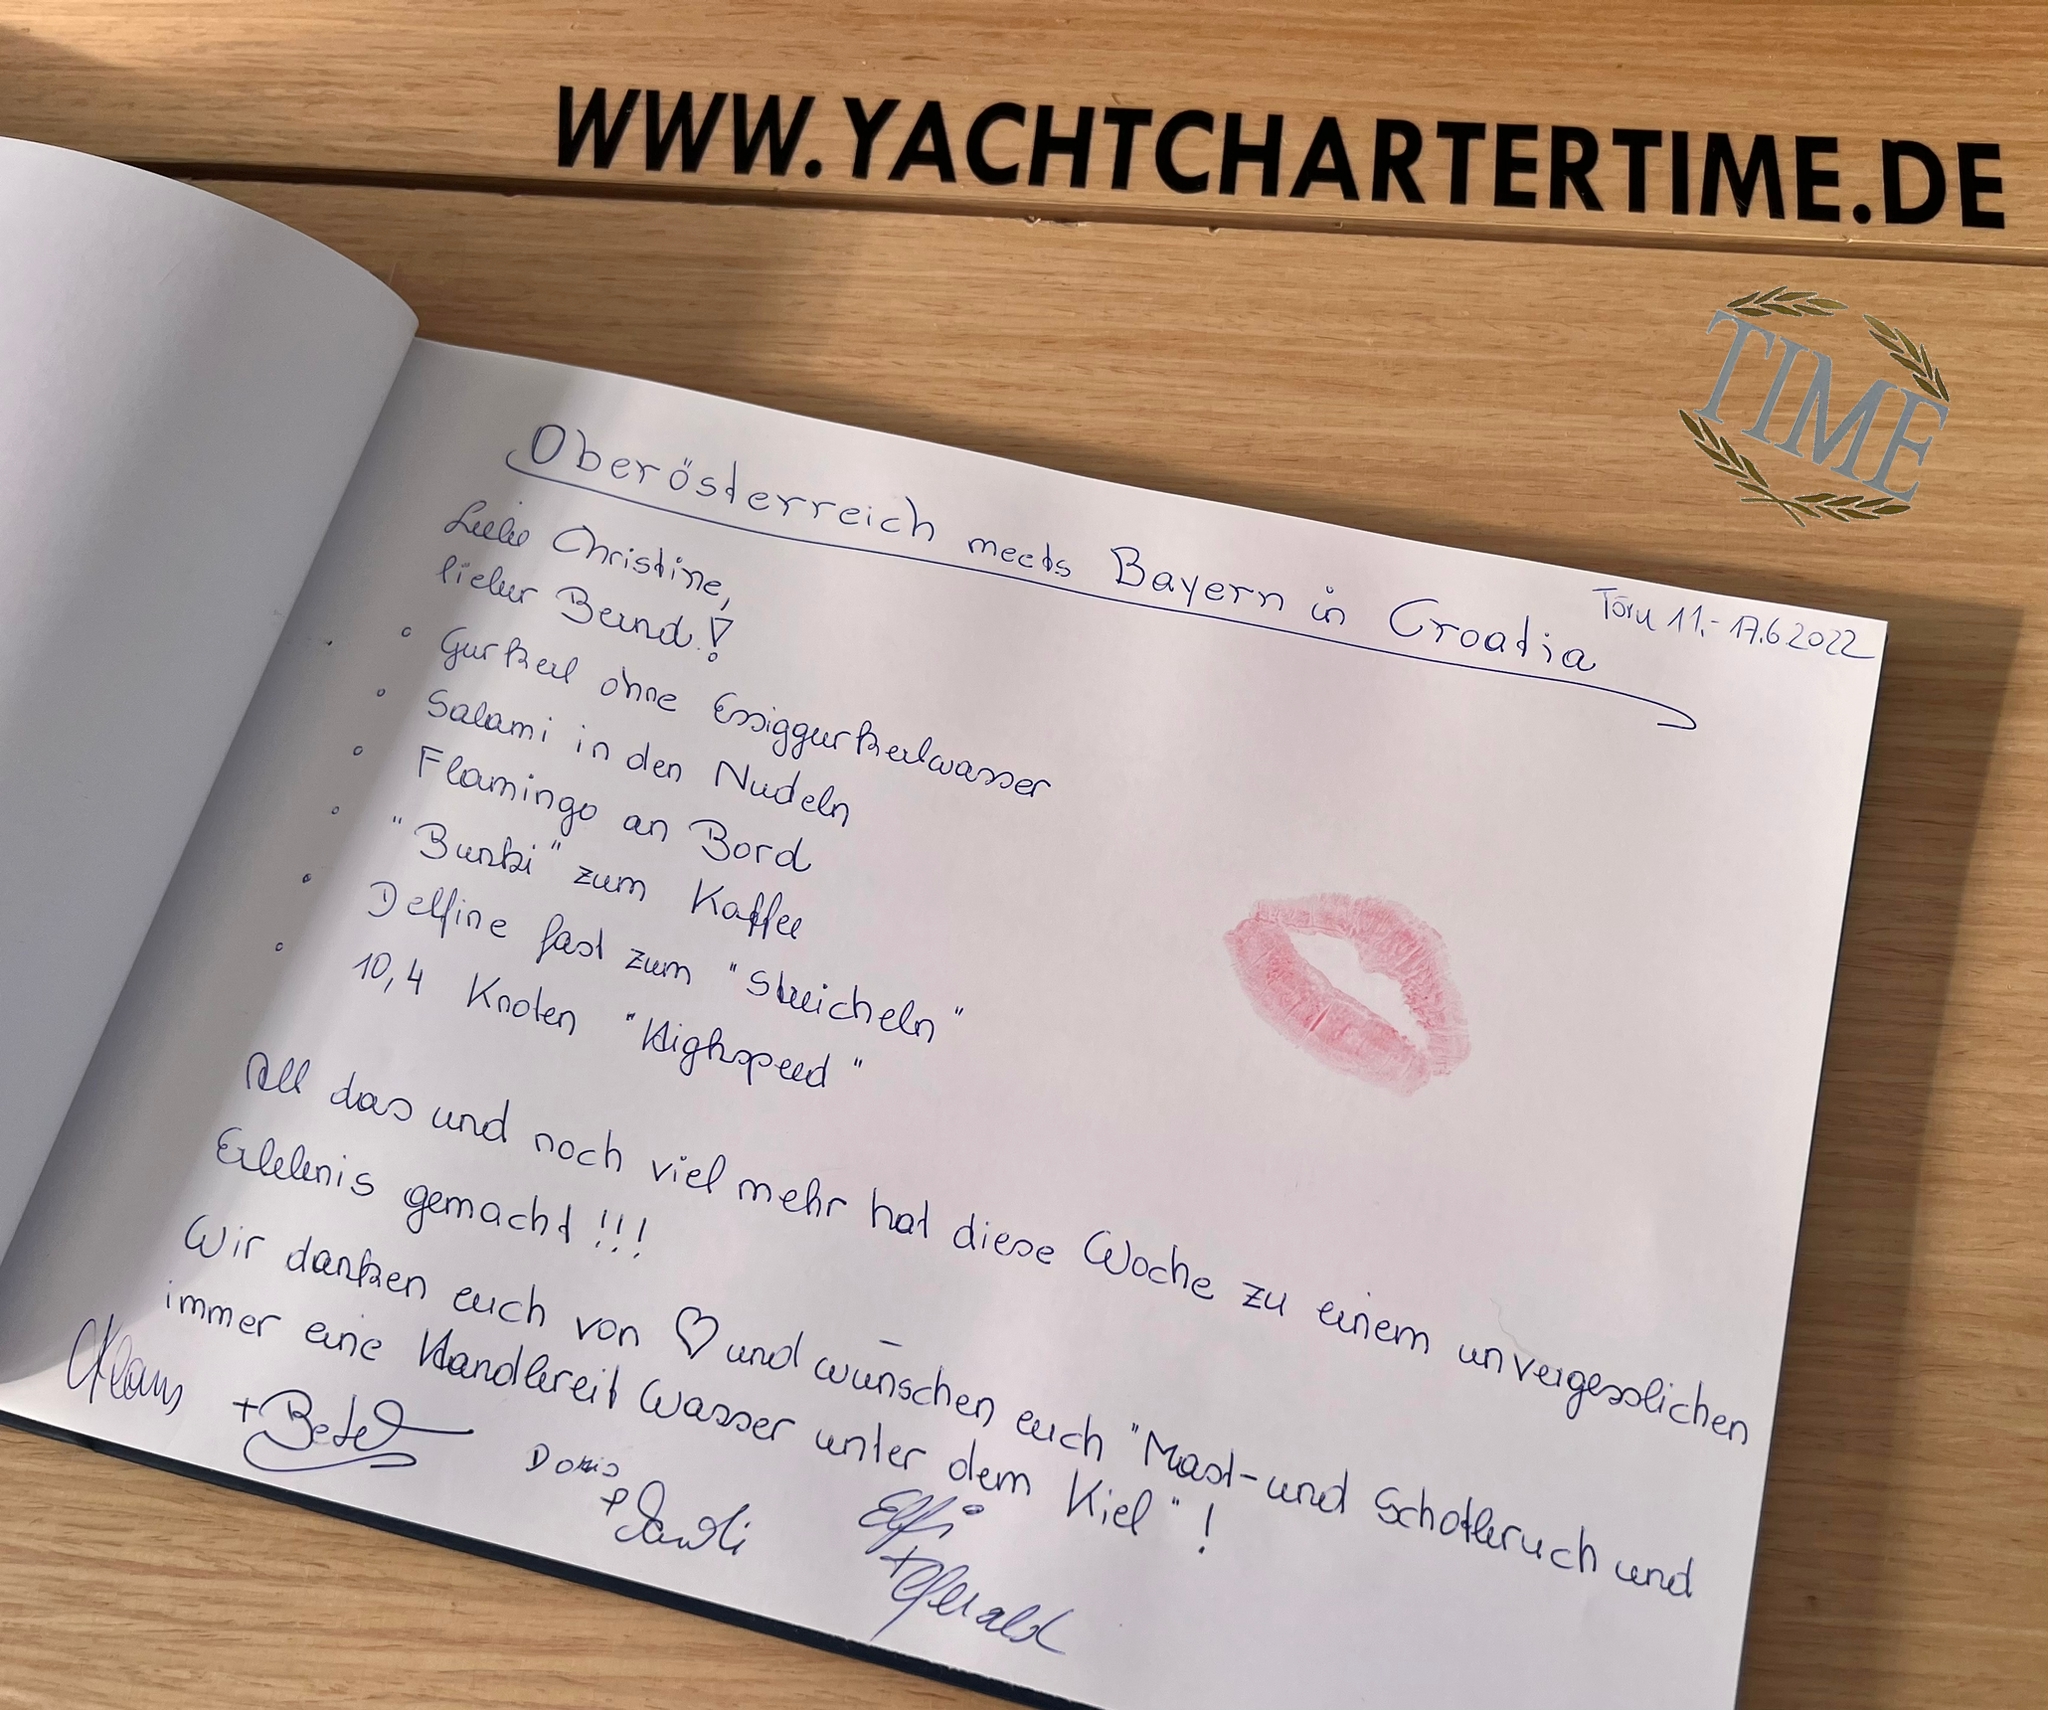 WWW.YACHTCHARTERTIME.DE
TIME
Oberösterreich meets Bayern in Croatia
Törn 11.-17.6.2022
Liebe Christine,
lieber Bernd!
° Gurkerl ohne Essiggurkerlwasser
° Salami in den Nudeln
° Flamingo an Bord
° "Bunki" zum Kaffee
° Delfine fast zum "Streicheln"
° 10,4 Knoten "Highspeed"
All das und noch viel mehr hat diese Woche zu einem unvergesslichen
Erlebnis gemacht!!!
Wir danken euch von ♡ und wünschen euch "Mast- und Schotbruch und
immer eine Handbreit Wasser unter dem Kiel"!
Klaus
Doris
Elfi
+ Gerald